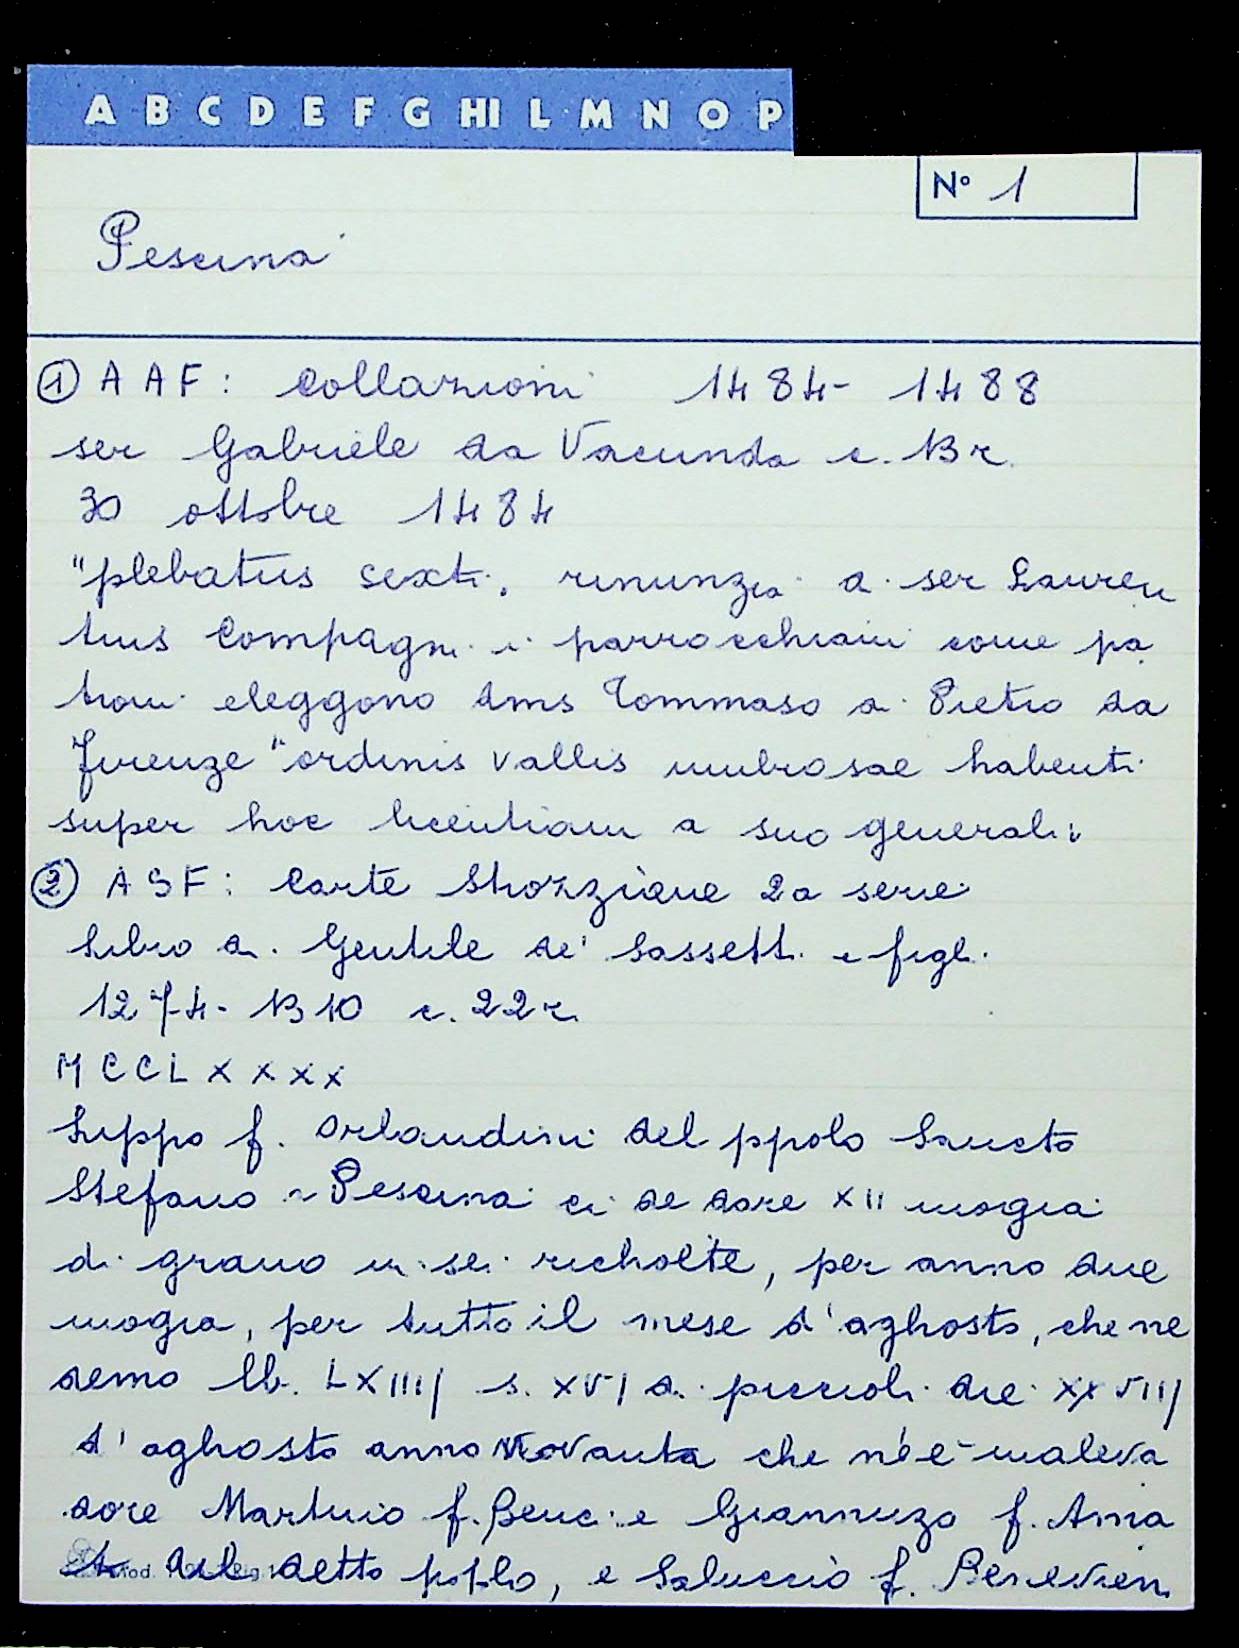 A B C D E F G HI L M N O P
N° 1
Pescina
① A A F : Collazioni 1484- 1488
ser Gabriele da Vacunda c. 13r.
30 ottobre 1484
"plebatus sexti, rinunzia a ser Lauren
tius Compagni i parrocchiani come pa
troni eleggono dms Tommaso di Pietro da
Firenze "ordinis vallis umbrosae habenti
super hoc licentiam a suo generali
② A S F : Carte Strozziane 2a serie
Libro di Gentile de' Sassetti e figli
1274- 1310 c. 22r
M C C L X X X X
Lippo f. Orlandini del ppolo Sancto
Stefano a Pescina ci de dare XII mogia
di grano in sei richolte, per anno due
mogia, per tutto il mese d'aghosto, che ne
demo lb. LXIIII s. XVI di piccioli die XXVIII
d'aghosto anno Novanta che né e-maleva
dore Martino f. Benci e Giannuzo f. Ama
del detto poplo, e Saluccio f. Benevien